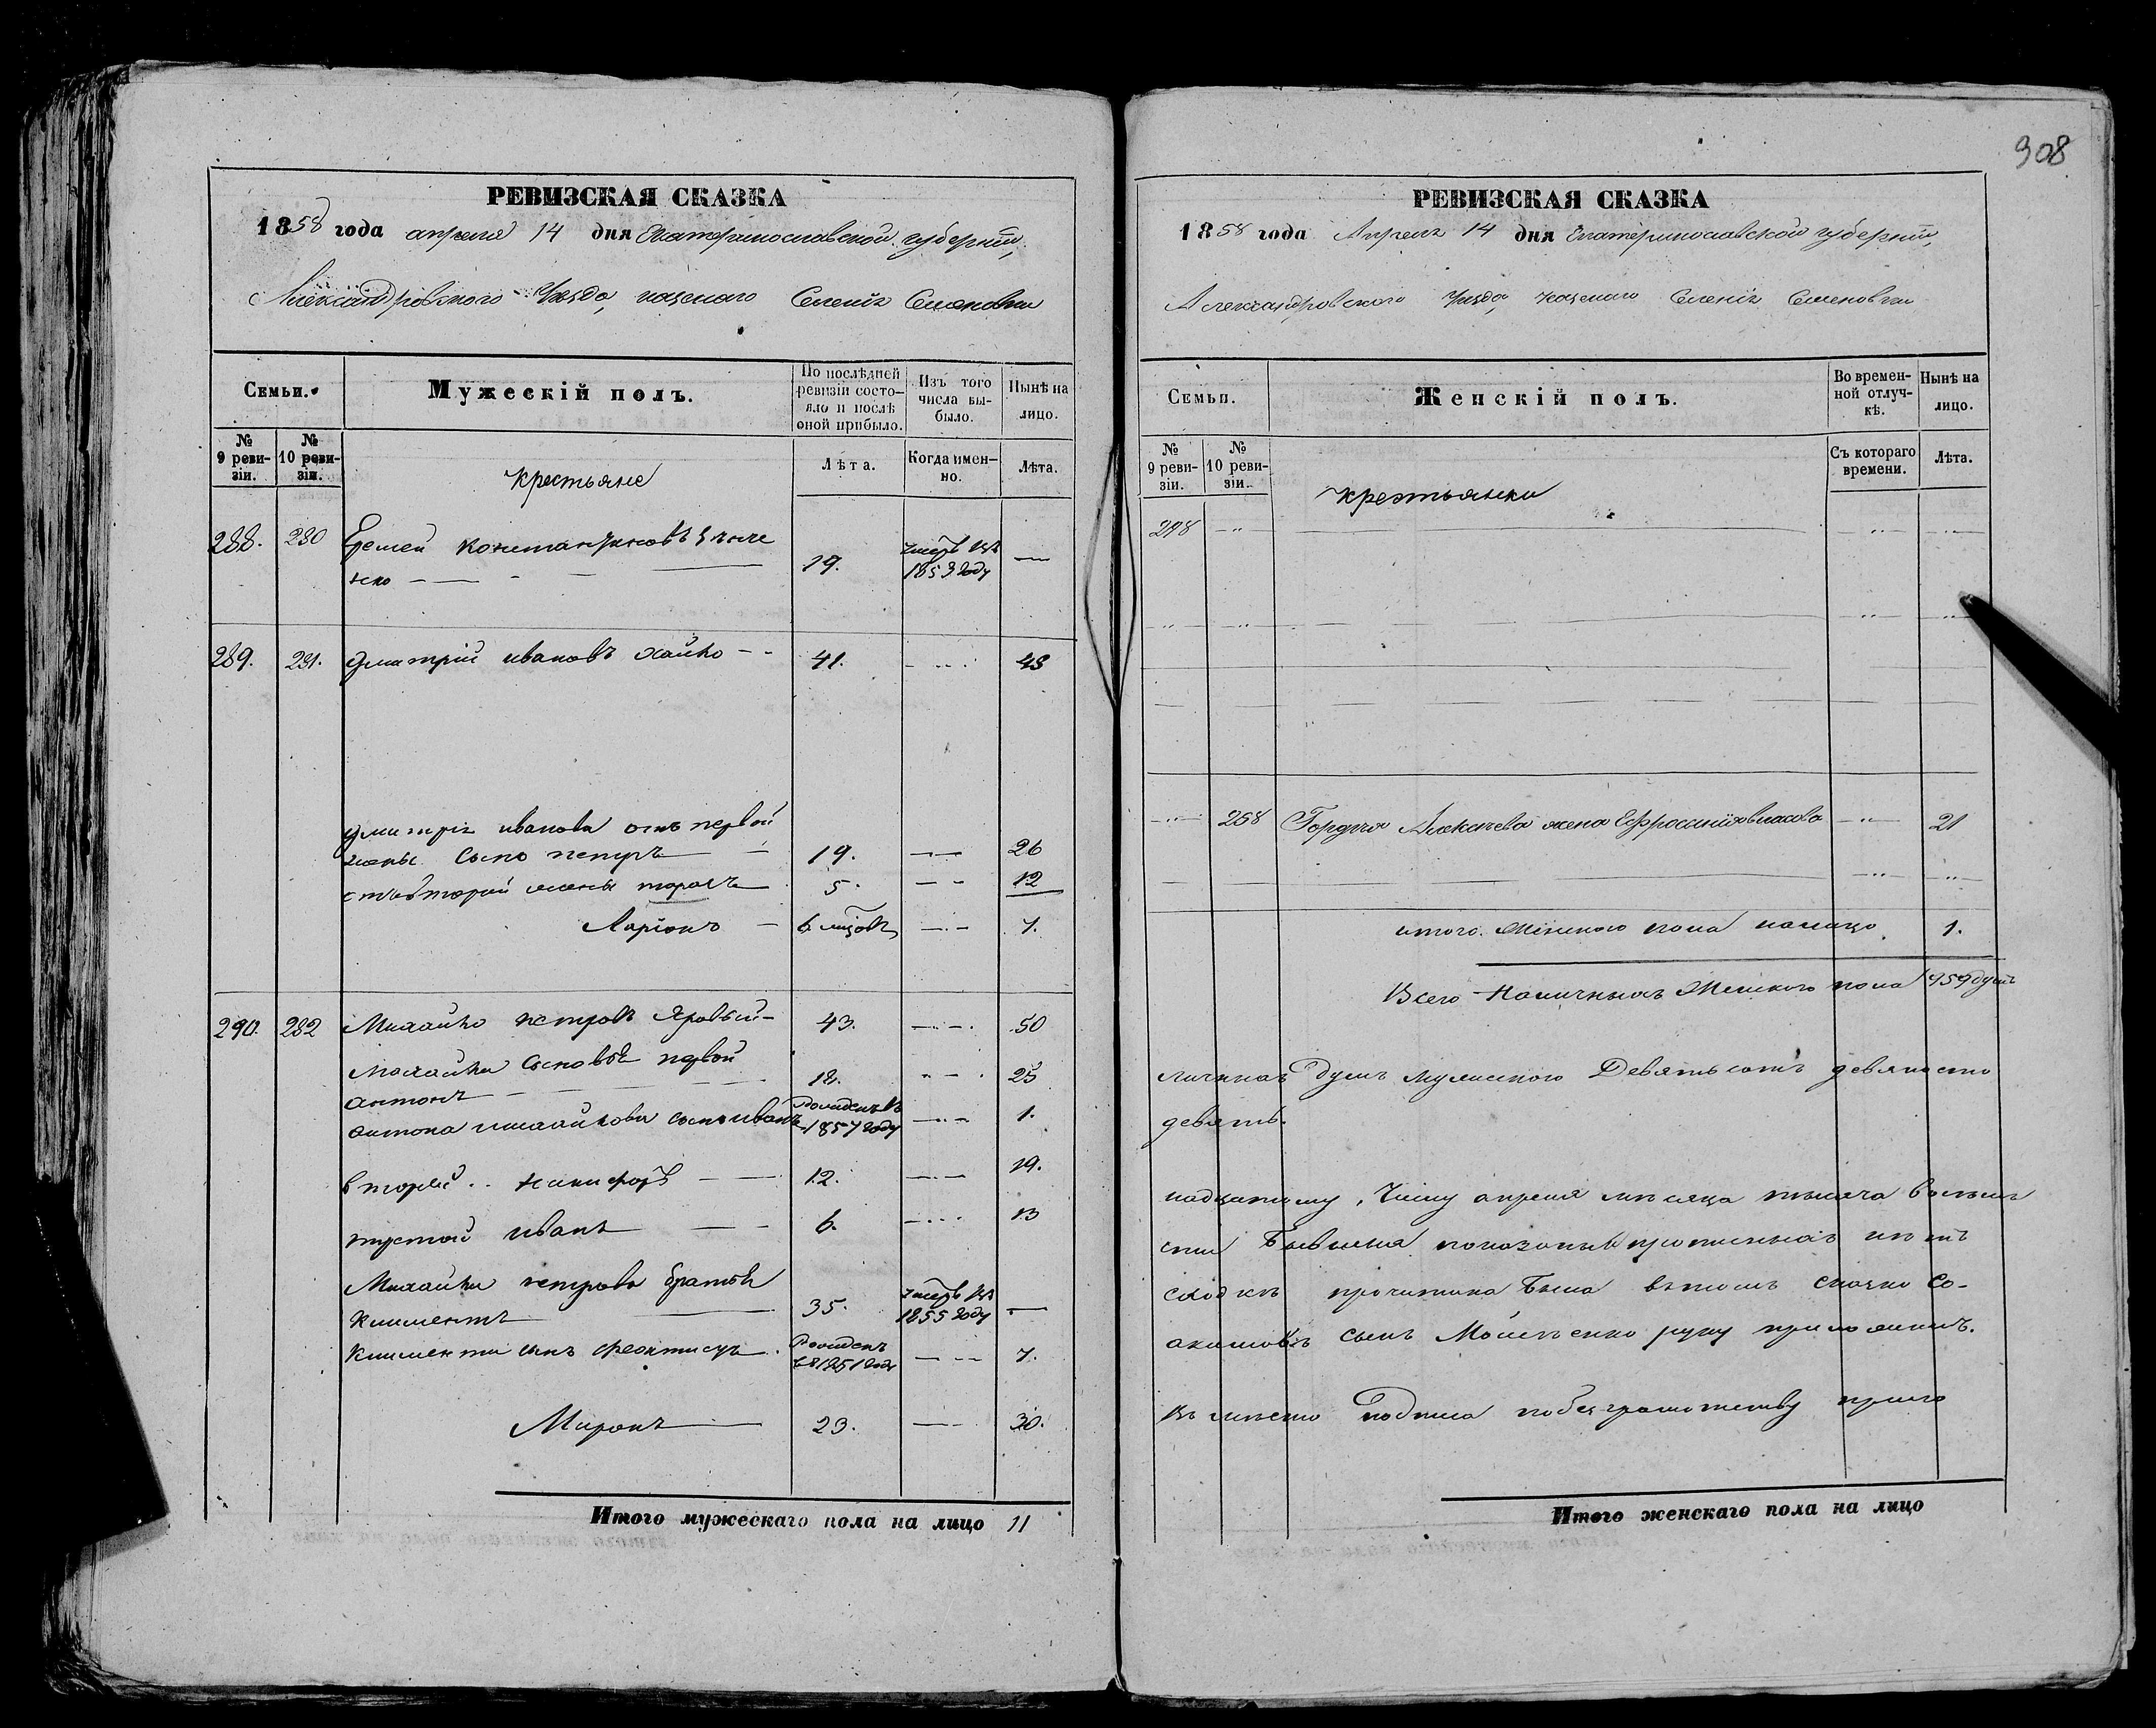 308
РЕВИЗСКАЯ СКАЗКА
1858 года апреля 14 дня Екатеринославской губерніи,
Александровского Уезда, казенаго Селенія Семеновки
Семьи.
Мужескій полъ.
По послѣдней ревизіи состо-
яло и послѣ оной прибыло.
Изъ того числа вы-
было.
Нынѣ на лицо.
№ 9 реви-
зіи.
№ 10 реви-
зіи.
Крестьяне
Лѣта.
Когда имен-
но.
Лѣта.
288. 280 Еремей Константиновъ
19.
1853 году —
289. 281. Дмитрій ивановъ Хайко 41. 48
Дмитрія иванова отъ первой
жены сынъ петръ 19. 26
отъ второй жены тарасъ 5. 12
Ларіонъ 6 7.
290. 282 Михайло петровъ Яровый 43. 50
Михайлы Сыновья первой
антонъ 18. 25
антона михайлова сынъ иванъ 1857 году 1.
второй никифоръ 12. 19.
третий иванъ 6. 13
Михайлы петрова братья
климентъ 35. 1855 году —
климентія сынъ феоктистъ 1851 году 7.
Миронъ 23. 30.
Итого мужескаго пола на лицо 11
РЕВИЗСКАЯ СКАЗКА
1858 года Апреля 14 дня Екатеринославской губерніи,
Александровского Уезда, казенаго Селенія Семеновки
Семьи.
Женскій полъ.
Во времен-
ной отлуч-
кѣ.
Нынѣ на лицо.
№ 9 реви-
зіи.
№ 10 реви-
зіи.
крестьянки
Съ котораго времени.
Лѣта.
298
268 Гордѣя Алексѣева жена Ефросинія власова 21
итого женского пола налицо 1.
Всего Наличныхъ Женского пола 959 душъ
личныхъ Душъ мужеского Девятьсотъ девяносто
девять.
надцатому Числу апреля месяца тысяча восемь
сходкѣ прочитана Была
акимовъ сынъ Моисеенко руку приложилъ.
Въ место безграмотству
Итого женскаго пола на лицо